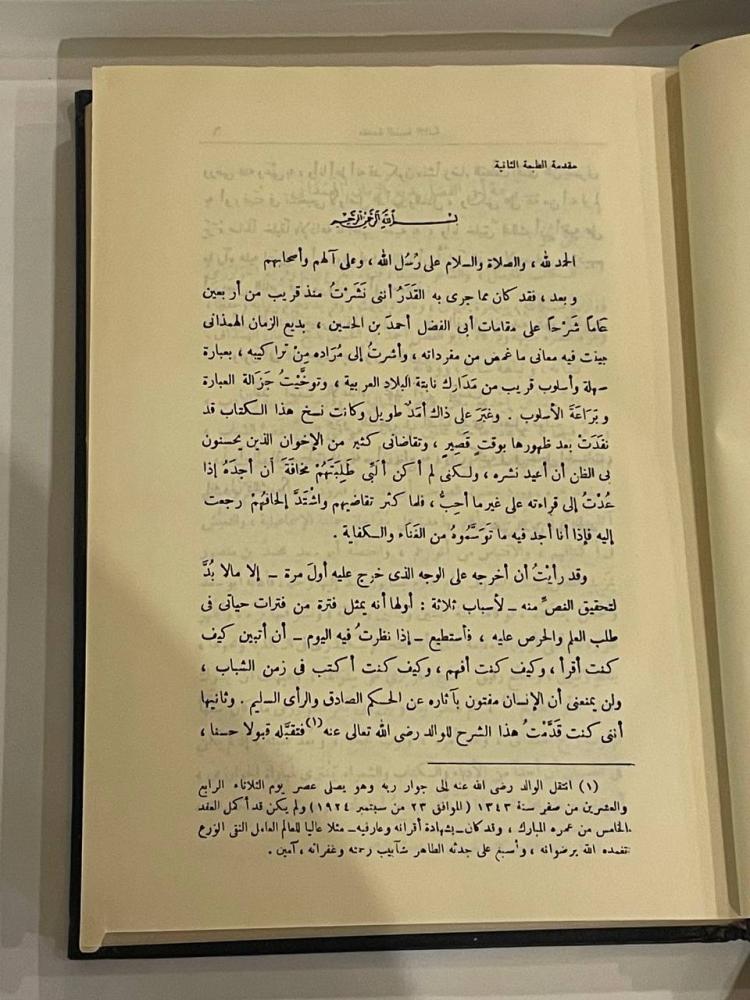 مقدمة الطبعة الثانية
بسم الله الرحمن الرحيم
الحمد لله ، والصلاة والسلام على رُسُل الله ، وعلى آلهم وأصحابهم
وبعد ، فقد كان مما جرى به القَدَرُ أننى نَشَرْتُ منذ قريب من أربعين
عَاماً شَرْحاً على مقامات أبى الفضل أحمدَ بن الحسين ، بديع الزمان الهمذانى
بينت فيه معانى ما غمض من مفرداته ، وأشرتُ إلى مُرَاده مِنْ تراكيبه ، بعبارة
سهلة وأسلوب قريب من مَدَارك نابتة البلاد العربية ، وتوخَّيْتُ جَزَالة العبارة
وبَرَاعَةَ الأسلوب . وغَبَرَ على ذاك أمَدٌ طويل وكانت نسخ هذا الكتاب قد
نفَدَتْ بعد ظهورها بوقتٍ قَصِيرٍ ، وتقاضانى كثير من الإخوان الذين يحسنون
بى الظن أن أعيد نشره ، ولكنى لم أكن ألَبِّى طَلِبَتَهُمْ مخافَةَ أن أجدَهُ إذا
عُدْتُ إلى قراءته على غير ما أحِبُّ ، فلما كثر تقاضيهم واشْتَدَّ إلحافُهُمْ رجعت
إليه فإذا أنا أجد فيه ما تَوَسَّمُوهُ من الغَنَاء والكفاية .
وقد رأيْتُ أن أخرجه على الوجه الذى خرج عليه أولَ مرة – إلا مالا بُدَّ
لتحقيق النصِّ منه – لأسباب ثلاثة : أولها أنه يمثل فترة من فترات حياتى فى
طلب العلم والحرص عليه ، فأستطيع – إذا نظرتُ فيه اليوم – أن أتبين كيف
كنت أقرأ ، وكيف كنت أفهم ، وكيف كنت أكتب فى زمن الشباب ،
ولن يمنعنى أن الإنسان مفتون بآثاره عن الحكم الصادق والرأى السليم . وثانيها
أننى كنت قدَّمْتُ هذا الشرح للوالد رضى الله تعالى عنه (١) فتقبَّله قبولا حسنا ،
(١) انتقل الوالد رضى الله عنه إلى جوار ربه وهو يصلى عصر يوم الثلاثاء الرابع
والعشرين من صفر سنة ١٣٤٣ (الموافق ٢٣ من سبتمبر ١٩٢٤) ولم يكن قد أكمل العقد
الخامس من عمره المبارك ، وقد كان – بشهادة أقرانه وعارفيه – مثلا عاليا للعالم العامل التقى الورع
تغمده الله برضوانه ، وأسبغ على جدثه الطاهر شآبيب رحمته وغفرانه ، آمين .